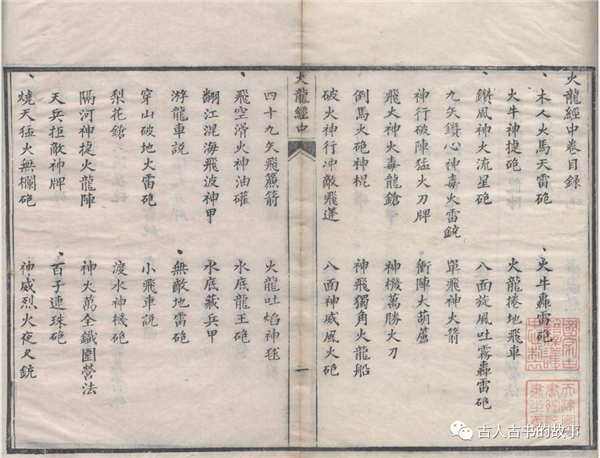 火龍經中卷目錄
木人火馬天雷砲　火牛轟雷砲
火牛神捷砲　火龍捲地飛車
鑽風神火流星砲　八面旋風吐霧轟雷砲
九矢鑽心神毒火雷銃　單飛神火箭
神行破陣猛火刀牌　衝陣火葫蘆
飛火神火毒龍鎗　神機萬勝火刀
倒馬火砲神棍　神飛獨角火龍船
破火神行冲敵飛　八面神威風火砲
火龍經中
一
四十九矢飛簾箭　火龍吐焰神毬
飛空滑火神油礶　水底龍王砲
翻江混海飛波神甲　水底藏兵甲
游龍車說　無敵地雷砲
穿山破地火雷砲　小飛車說
梨花鎗　渡水神機砲
隔河神捷火龍陣　神火萬全鐵圍營法
天兵拒敵神牌　百子連珠砲
燒天猛火無欄砲　神威烈火夜叉銃
古人古书的故事